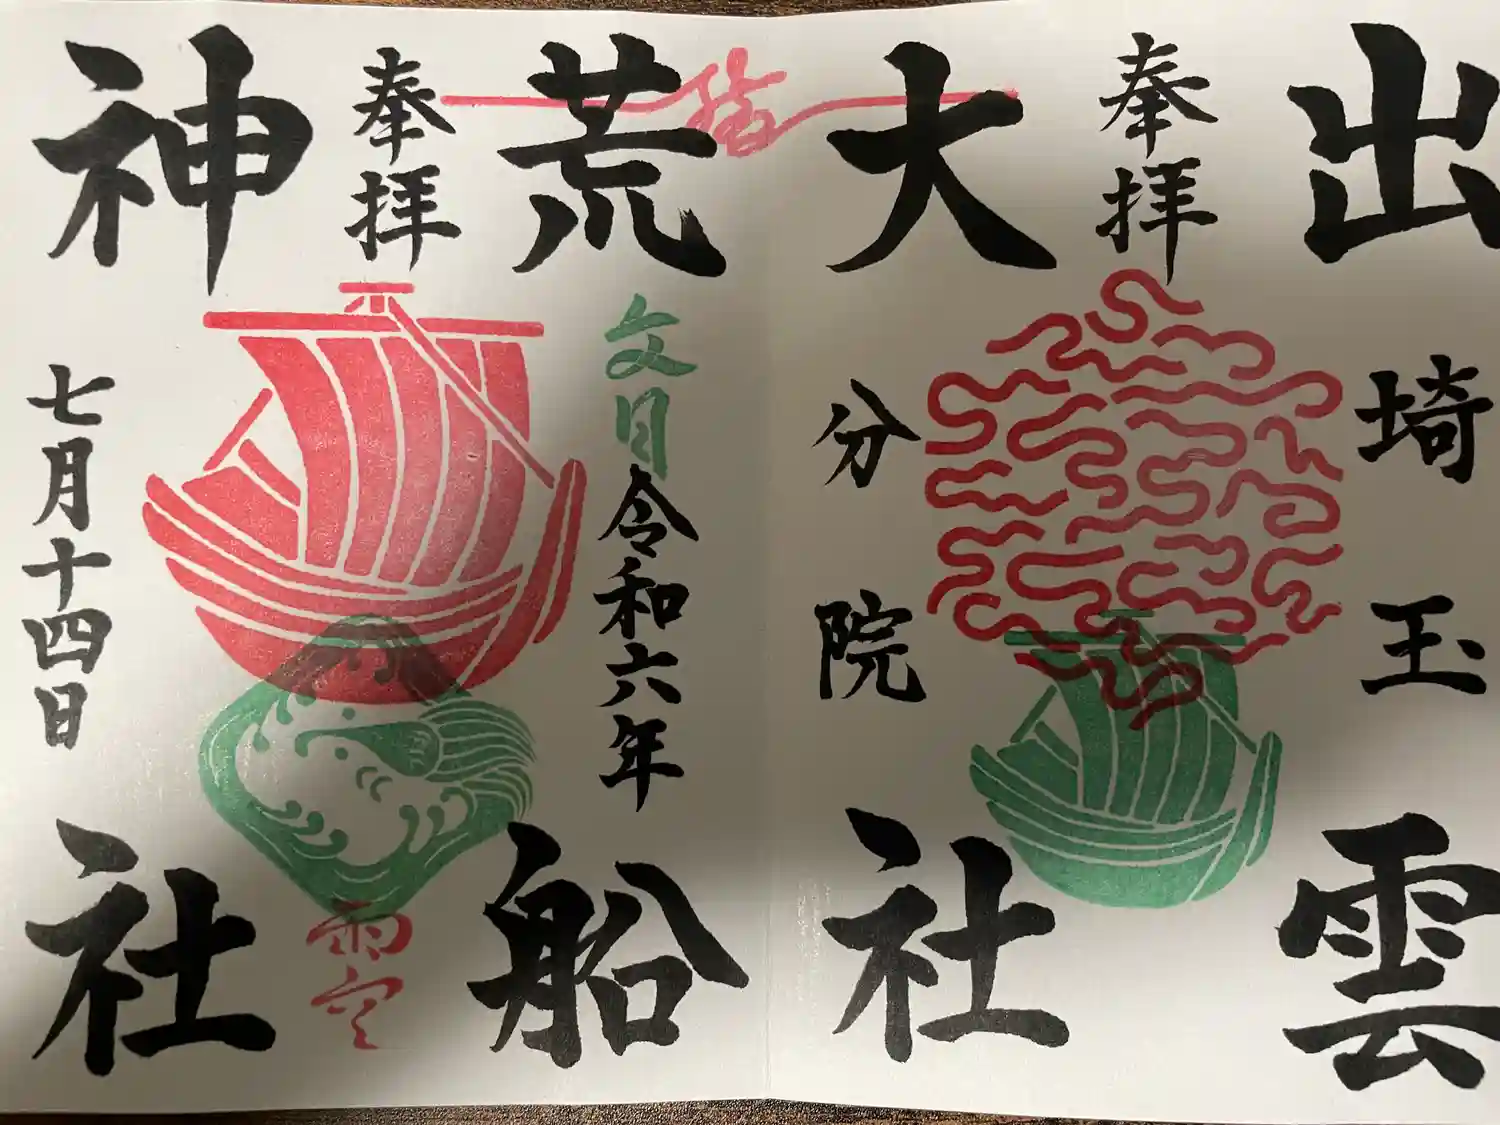 出雲
奉拝
埼玉
大社
分院
荒船
奉拝
文月
令和六年
神社
七月十四日
雨空